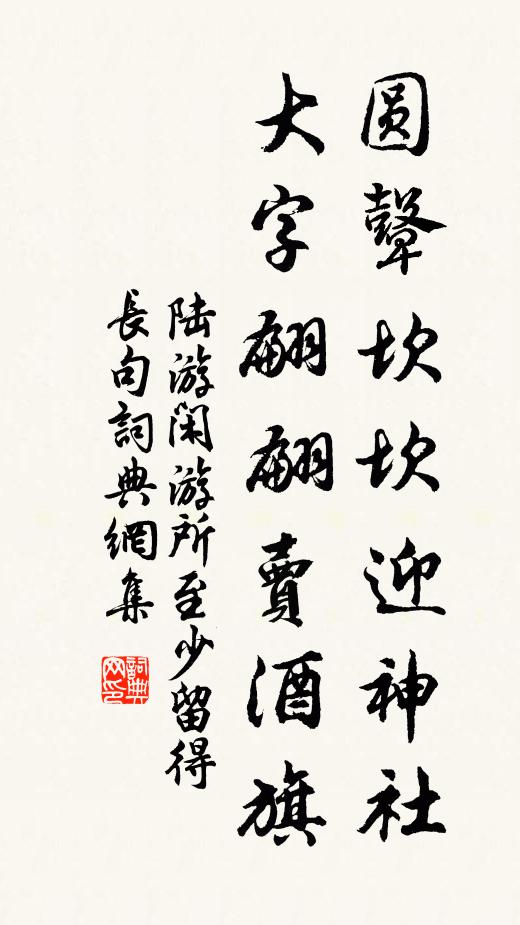 圆鼙坎坎迎神社
大字翩翩賣酒旗
陸游闲游所至少留得
長句詞典網集
詞典网印